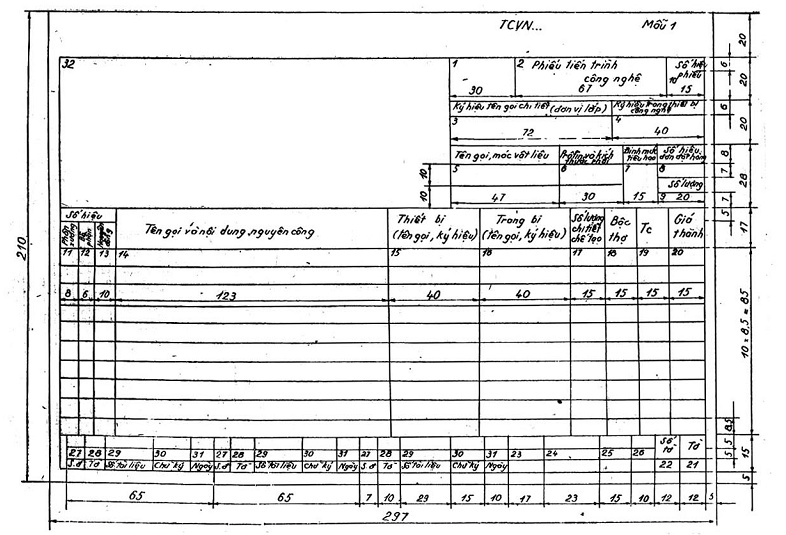 TCVN... Mẫu 1
32
1 2 Phiếu tiến trình công nghệ Số hiệu phiếu
30 67 10 15
Ký hiệu tên gọi chi tiết (đơn vị lắp) Ký hiệu trong thiết bị công nghệ
3 4
72 40
Tên gọi, mác vật liệu Định mức tiêu hao Số hiệu đơn đặt hàng
5 6 7 8
Số lượng
47 30 15 9 20
Số hiệu
Phân xưởng Bộ phận Nguyên công Tên gọi và nội dung nguyên công Thiết bị (tên gọi, ký hiệu) Trang bị (tên gọi, ký hiệu) Số lượng chi tiết chế tạo Bậc thợ Tc Giá thành
11 12 13 14 15 16 17 18 19 20
8 6 10 123 40 40 15 15 15 15
Số tờ Tờ
27 28 29 30 31 27 28 29 30 31 27 28 29 30 31 23 24 25 26
S.đ Tờ Số tài liệu Chữ ký Ngày S.đ Tờ Số tài liệu Chữ ký Ngày S.đ Tờ Số tài liệu Chữ ký Ngày 22 21
65 65 7 10 23 15 10 17 23 15 10 12 12 5
297
210
20
6
20
6
20
8
7
28
7
5
17
10 x 8,5 = 85
8,5
5
5
15
5
10
10